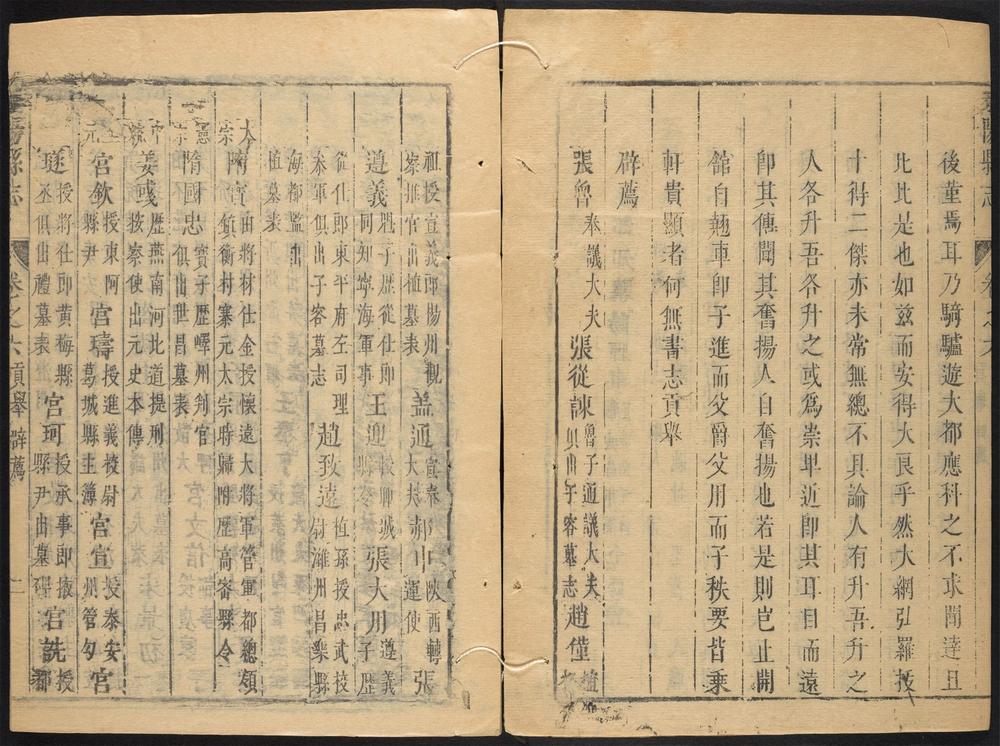 縣志
後董焉耳乃騎驢遊大都應科之不求聞達且
比比是也如兹而安得大良乎然大網弘羅茇
十得二傑亦未常無總不具論人有升吾升之
人各升吾各升之或爲崇卑近卽其耳目而遠
卽其傳聞其奮揚人自奮揚也若是則豈止開
館自翹車卽子進而父爵父用而子秩要皆乗
軒貴顯者何無書志貢舉
辟薦
張魯 奉議大夫 張從諫 魯子通議大夫 俱出子容墓志 趙僅 植
祖授宣義郎揚州觀 察推官出植墓表 盖通 大夫 郝山 陜西轉 運使 張
遵義 從子歷從仕郎 同知寧海軍事 王迎 授聊城 縣 張大用 遵義 子歷
從仕郎東平府左司理 叅軍俱出子容墓志 趙致遠 植孫授忠武校 尉濰州昌樂縣
海都監出 植墓表
太宗 隋寳 由將材仕金授懷遠大將軍管軍都總領 鎮衡村寨元太宗時歸附歷高密縣令
憲宗 隋國忠 寳子歷嶧州判官 俱出世昌墓表
中統 姜彧 歷燕南河北道提刑 按察使出元史本傳
元 宫欽 授東阿 縣尹 宫璹 授進義校尉 葛城縣主簿 宫宣 授泰安 州管勾 宫
珽 授將仕郎黄梅縣 丞俱出禮墓表 宫珂 授承事郎掖 縣尹出墓碑 宫詵 授 都
縣志 卷之六 貢舉 辟薦